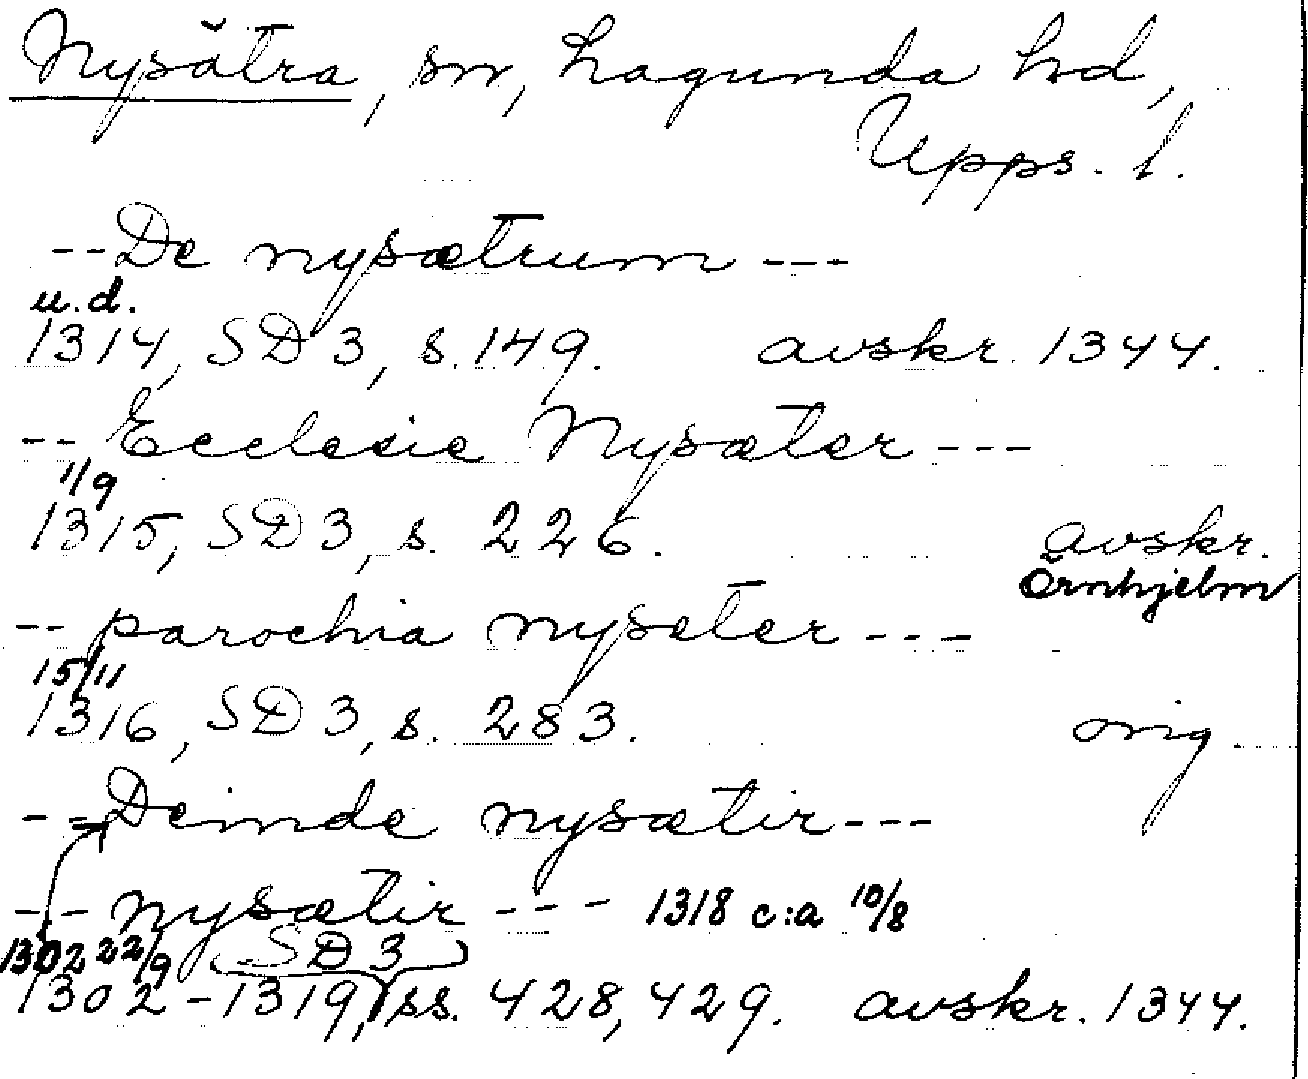 Nysätra, sn, Lagunda hd,
Upps. l.
-- De nysætrum ---
u.d.
1314, SD 3, s. 149. avskr. 1344.
-- Ecclesie Nysæter ---
1/9
1315, SD 3, s. 226. avskr.
Örnhjelm
-- parochia nyseter ---
15/11
1316, SD 3, s. 283. orig
-- Deinde nysætir ---
--- nysætir --- 1318 c:a 10/8
1302 22/9 SD 3
1302-1319, ss. 428, 429. avskr. 1344.